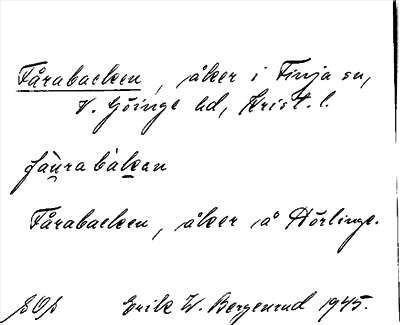 Fårabacken, åker i Finja sn,
V. Göinge hd, Krist. l.
fàu̠rabàk̠an
Fårabacken, åker å Hörlinge.
Erik W. Bergenrud 1945.